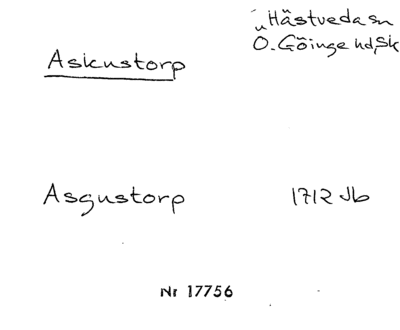 Hästveda sn
Askustorp
Ö. Göinge hd, Sk
Asgustorp
1712 Jb
Nr 17756